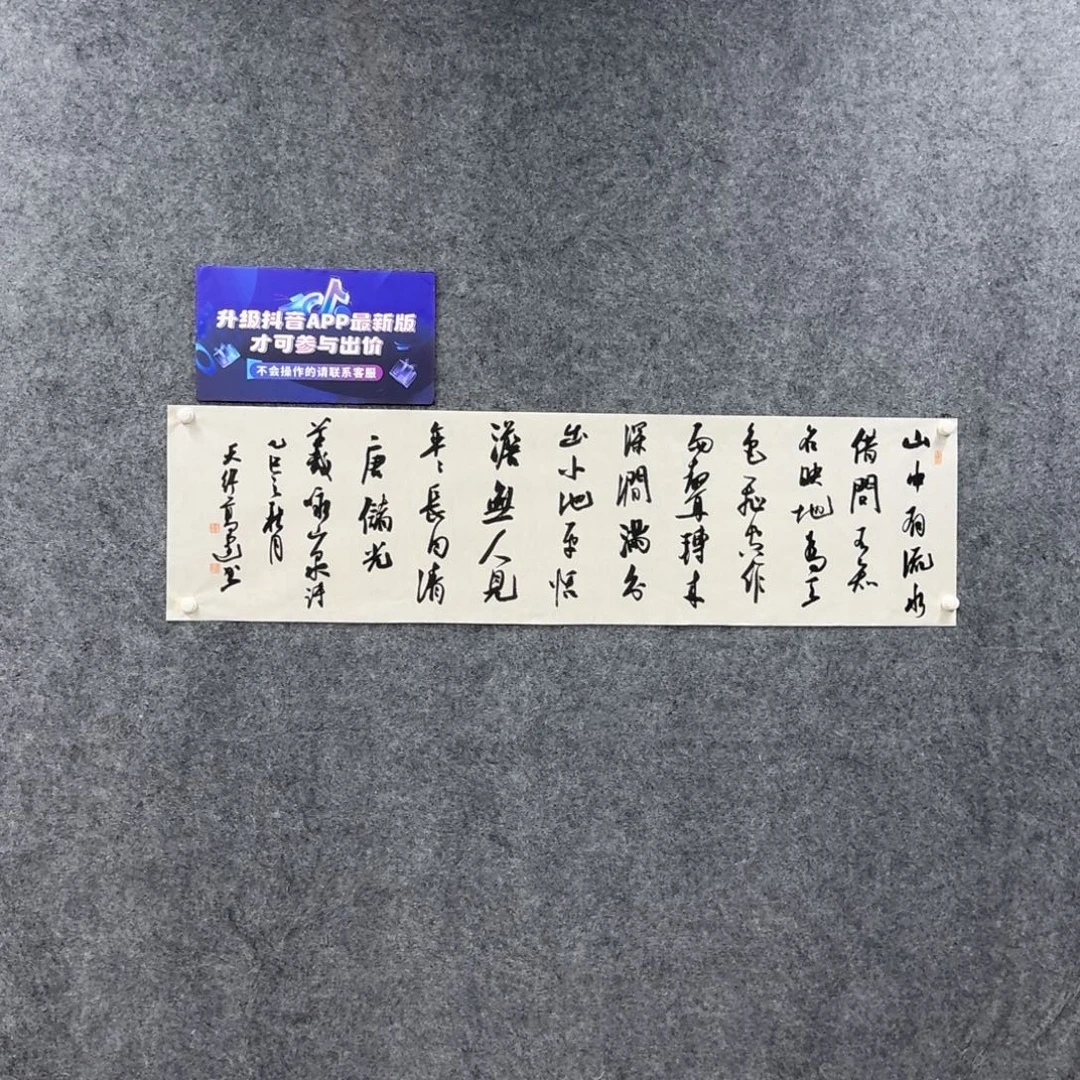 升级抖音APP最新版
才可参与出价
不会操作的请联系客服
山中有流水
借問不知
名映地為天
色飛空作
雨聲轉來
深澗滿分
出小池平恬
澹無人見
年〻長自清
唐儲光
羲咏山泉詩
乙巳之秋月
天 高 书